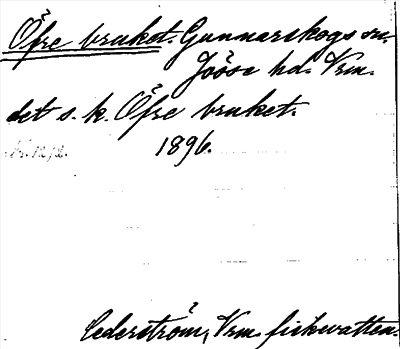 Öfre bruket. Gunnarskogs sn.
Jösse hd. Vrm.
det s. k. Öfre bruket.
1896.
Cederström, Vrm. fiskevatten.